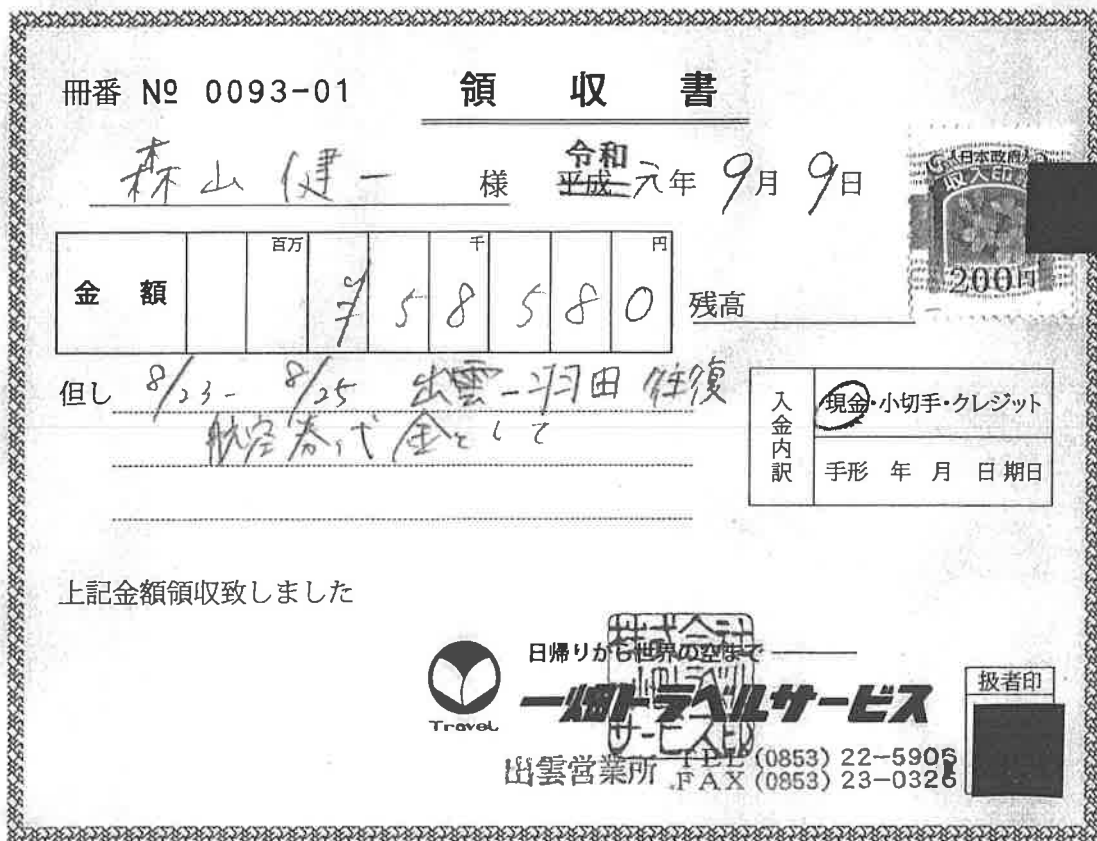 冊番 № 0093-01
領収書
森山健一 様
令和
平成 元年 9月 9日
日本政府
収入印
200円
百万 千 円
金額 ¥58580
残高
但し 8/23- 8/25 出雲-羽田 往復
航空券代金として
入金内訳
現金・小切手・クレジット
手形 年 月 日期日
上記金額領収致しました
日帰りから世界の空まで
Travel
一畑トラベルサービス
株式会社
扱者印
出雲営業所 TEL (0853) 22-5906
FAX (0853) 23-0326